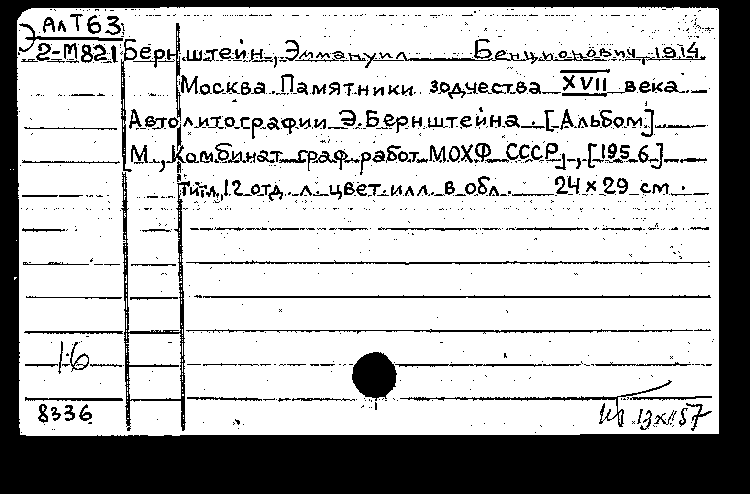 Э АлТ63
2-М821 Бернштейн, Эммануил Бенционович, 1914
Москва. Памятники зодчества XVII века
Автолитографии Э.Бернштейна. [Альбом]
[М., Комбинат граф. работ МОХФ СССР], [1956]
Титл, 12 отд. л. цвет. илл. в обл. 24×29 см.
16
8336